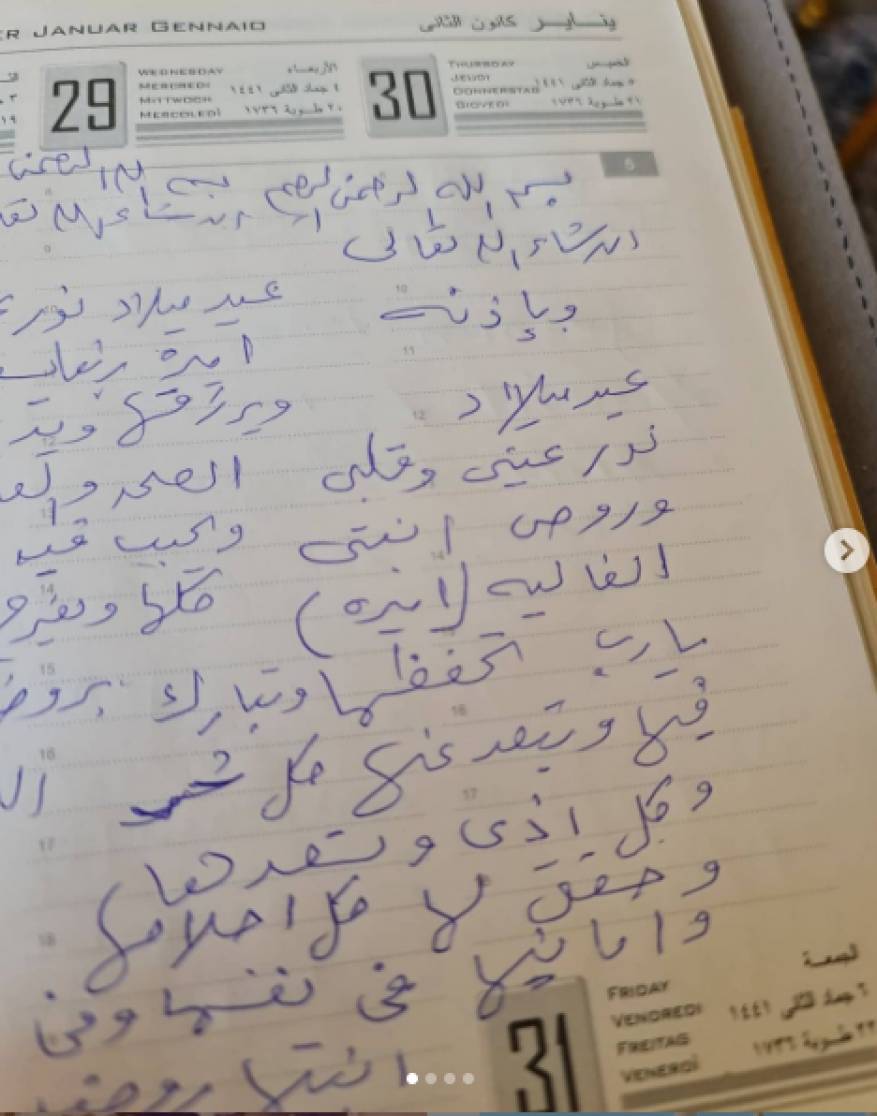 ER JANUAR GENNAIO
ينـايـر كانون الثانى
29
WEDNESDAY
MERCREDI
MITTWOCH
MERCOLEDÌ
الأربعاء
٤ جماد الثانى ١٤٤١
٢٠ طـوبة ١٧٣٦
30
THURSDAY
JEUDI
DONNERSTAG
GIOVEDI
الخميس
٥ جماد الثانى ١٤٤١
٢١ طـوبة ١٧٣٦
5
بسم الله الرحمن الرحيم
ان شاء الله تعالى
وبإذنه
عيد ميلاد
نور عينى وقلبى
وروحى ابنتى
الغاليه (اميره)
يارب تحفظها وتبارك
فيها وتبعد عنها كل شر
وكل اذى وتسعدها
وحقق لها كل احلامها
وامانيها فى نفسها وفى
ابنتها روحى
بسم الله الرحمن
ان شاء الله تعا
عيد ميلاد نور
اميرة
ويرزقها
الصحه
والحب
كلها
31
FRIDAY
VENDREDI
FREITAG
VENERDÌ
الجمعة
٦ جماد الثانى ١٤٤١
٢٢ طـوبة ١٧٣٦